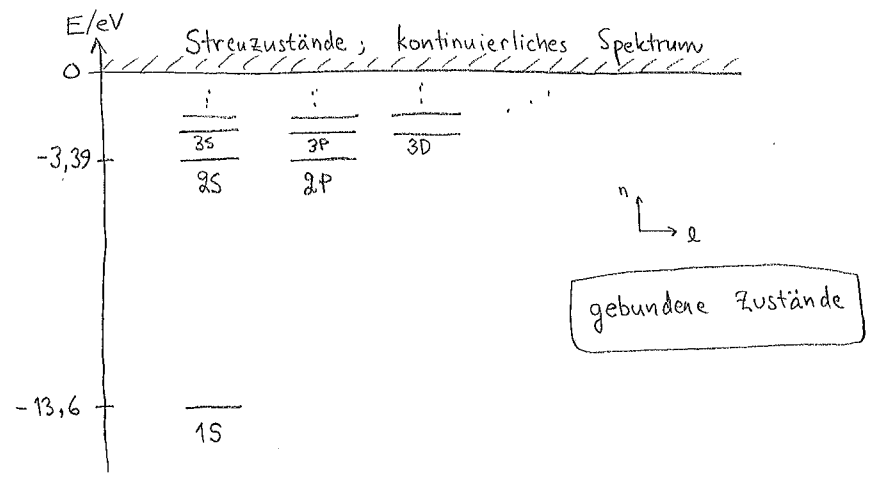 E/eV
Streuzustände; kontinuierliches Spektrum
0
3S 3P 3D
-3,39
2S 2P
n
l
gebundene Zustände
-13,6
1S